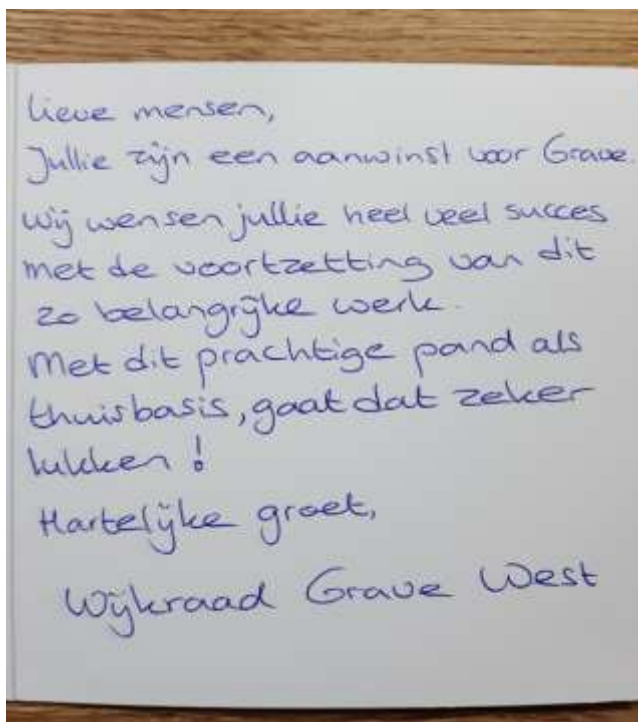 Lieve mensen,
Jullie zijn een aanwinst voor Grave.
Wij wensen jullie heel veel succes
met de voortzetting van dit
zo belangrijke werk.
Met dit prachtige pand als
thuisbasis, gaat dat zeker
lukken!
Hartelijke groet,
Wijkraad Grave West